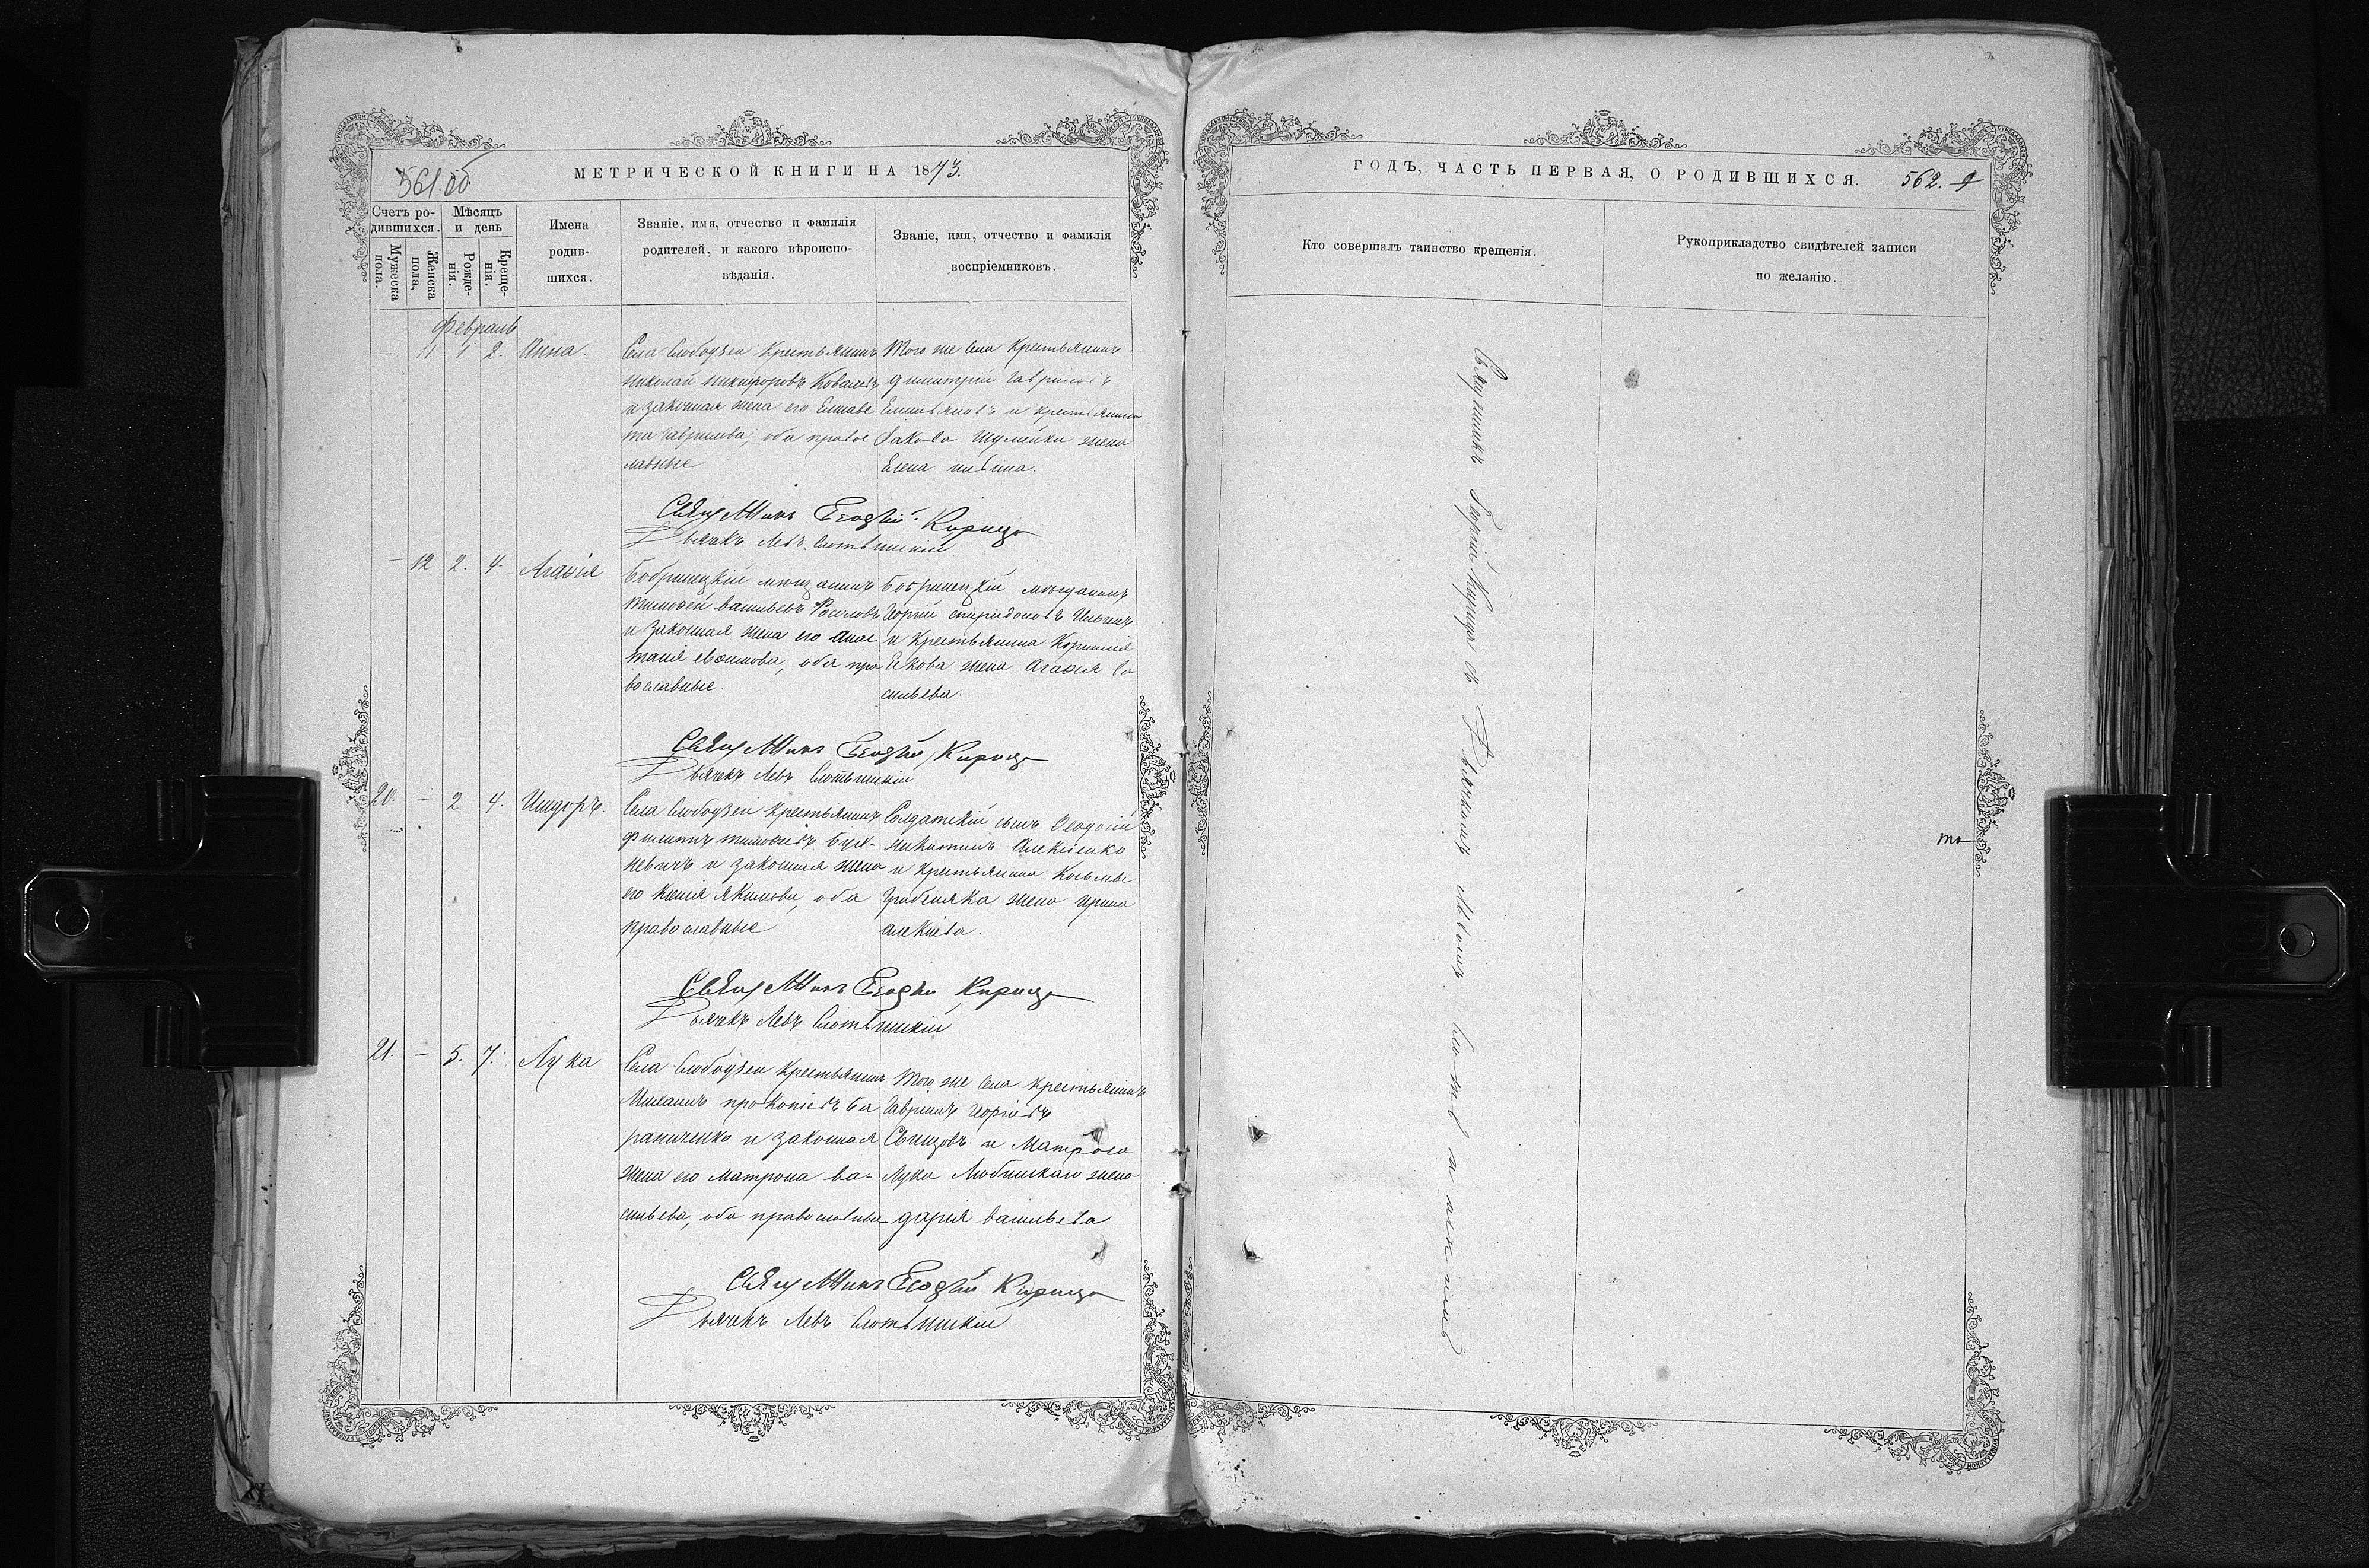 561.об
МЕТРИЧЕСКОЙ КНИГИ НА 1873.
Счетъ ро-
дившихся.
Мужеска
пола.
Женска
пола,
Мѣсяцъ
и день
Рожде-
нія.
Креще-
нія.
Имена
родив-
шихся.
Званіе, имя, отчество и фамилія
родителей, и какого вѣроиспо-
вѣданія.
Званіе, имя, отчество и фамилія
воспріемниковъ.
Февраль
– 11 1 2. Анна.
Села Слободзеи крестьянинъ
Николай Никифоровъ Ковалевъ
и законная жена его Елисаве
та Гаврилова, оба правос
лавные
Того же села крестьянинъ
Димитрій Гавриловъ
Емельяновъ и крестьянина
Іакова Шумейки жена
Елена
Священникъ Георгій Кирица
Дьячекъ Левъ
– 12 2. 4. Агафія
Бобринецкій мѣщанинъ
Тимофей Васильевъ
и законная жена его Анас
тасія Евфимова, оба пра
вославные.
Бобринецкій мѣщанинъ
Георгій Спиридоновъ
и крестьянина Корнилія
жена Агафія Ва
сильева.
Священникъ Георгій Кирица
Дьячекъ Левъ
20. – 2 4. Исидоръ.
Села Слободзеи крестьянинъ
Филиппъ Тимофеевъ
и законная жена
его Ксенія Якимова, оба
православные
Солдатскій сынъ Феодосій
Никитинъ Алексѣенко
и крестьянина Косьмы
жена Ирина
Алексѣева.
Священникъ Георгій Кирица
Дьячекъ Левъ
21. – 5. 7. Лука
Села Слободзеи крестьянинъ
Михаилъ Прокопіевъ Ба
раниченко и законная
жена его Матрона Ва-
сильева, оба православные
Того же села крестьянинъ
Гавріилъ Георгіевъ
и Матроса
Луки Любинскаго жена
Дарія Васильева
Священникъ Георгій Кирица
Дьячекъ Левъ
ГОДЪ, ЧАСТЬ ПЕРВАЯ, О РОДИВШИХСЯ.
562.
Кто совершалъ таинство крещенія.
Рукоприкладство свидѣтелей записи
по желанію.
Священникъ Георгій Кирица съ Дьячкомъ Львомъ
то